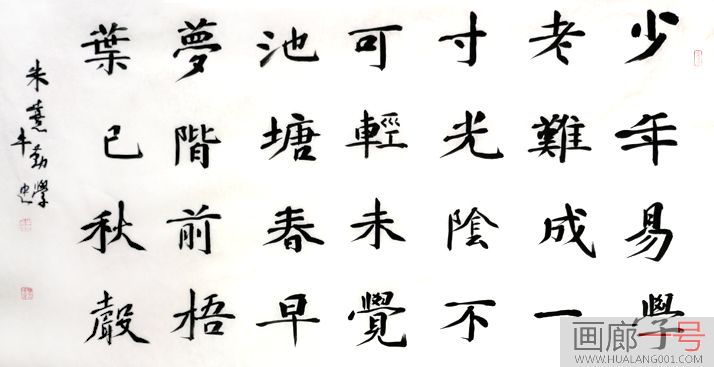 少年易學
老難成一
寸光陰不
可輕未覺
池塘春早
夢階前梧
葉已秋聲
朱熹勤學
画廊一号
WWW.HUALANG001.COM